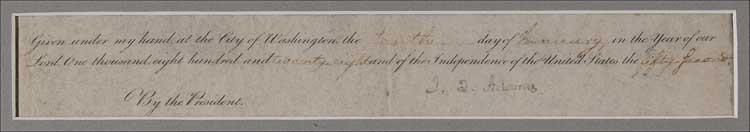 Given under my hand, at the City of Washington, the fourth day of January in the Year of our
Lord One thousand eight hundred and twenty eight and of the Independence of the United States the fifty second
By the President.
J. Q. Adams